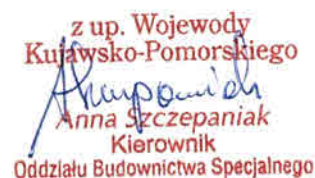 z up. Wojewody
Kujawsko-Pomorskiego
Anna Szczepaniak
Kierownik
Oddziału Budownictwa Specjalnego